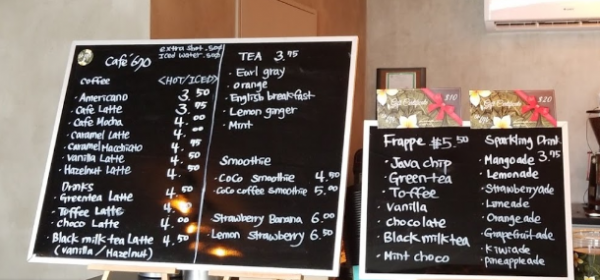 Café 690
extra shot .50¢
Iced water .50¢
coffee <HOT/ICED>
· Americano 3.50
· Cafe Latte 3.95
· Cafe Mocha 4.00
· Caramel Latte 4.00
· Caramel Macchiato 4.95
· Vanilla Latte 4.50
· Hazelnut Latte 4.00
Drinks
· Greentea Latte 4.50
· Toffee Latte 4.00
· Choco Latte 4.00
· Black milk tea Latte 4.50
(vanilla / Hazelnut)
TEA 3.95
· Earl gray
· orange
· English breakfast
· Lemon ginger
· Mint
Smoothie
· CoCo Smoothie 4.50
· CoCo coffee smoothie 5.00
Strawberry Banana 6.00
· Lemon Strawberry 6.50
$10
$20
Frappe $5.50
· Java chip
· Green tea
· Toffee
· Vanilla
· chocolate
· Black milk tea
· Mint choco
Sparkling Drink
3.95
· Mangoade
· Lemonade
· Strawberryade
· Limeade
· Orangeade
· Grapefruit-ade
· Kiwiade
· pineapleade